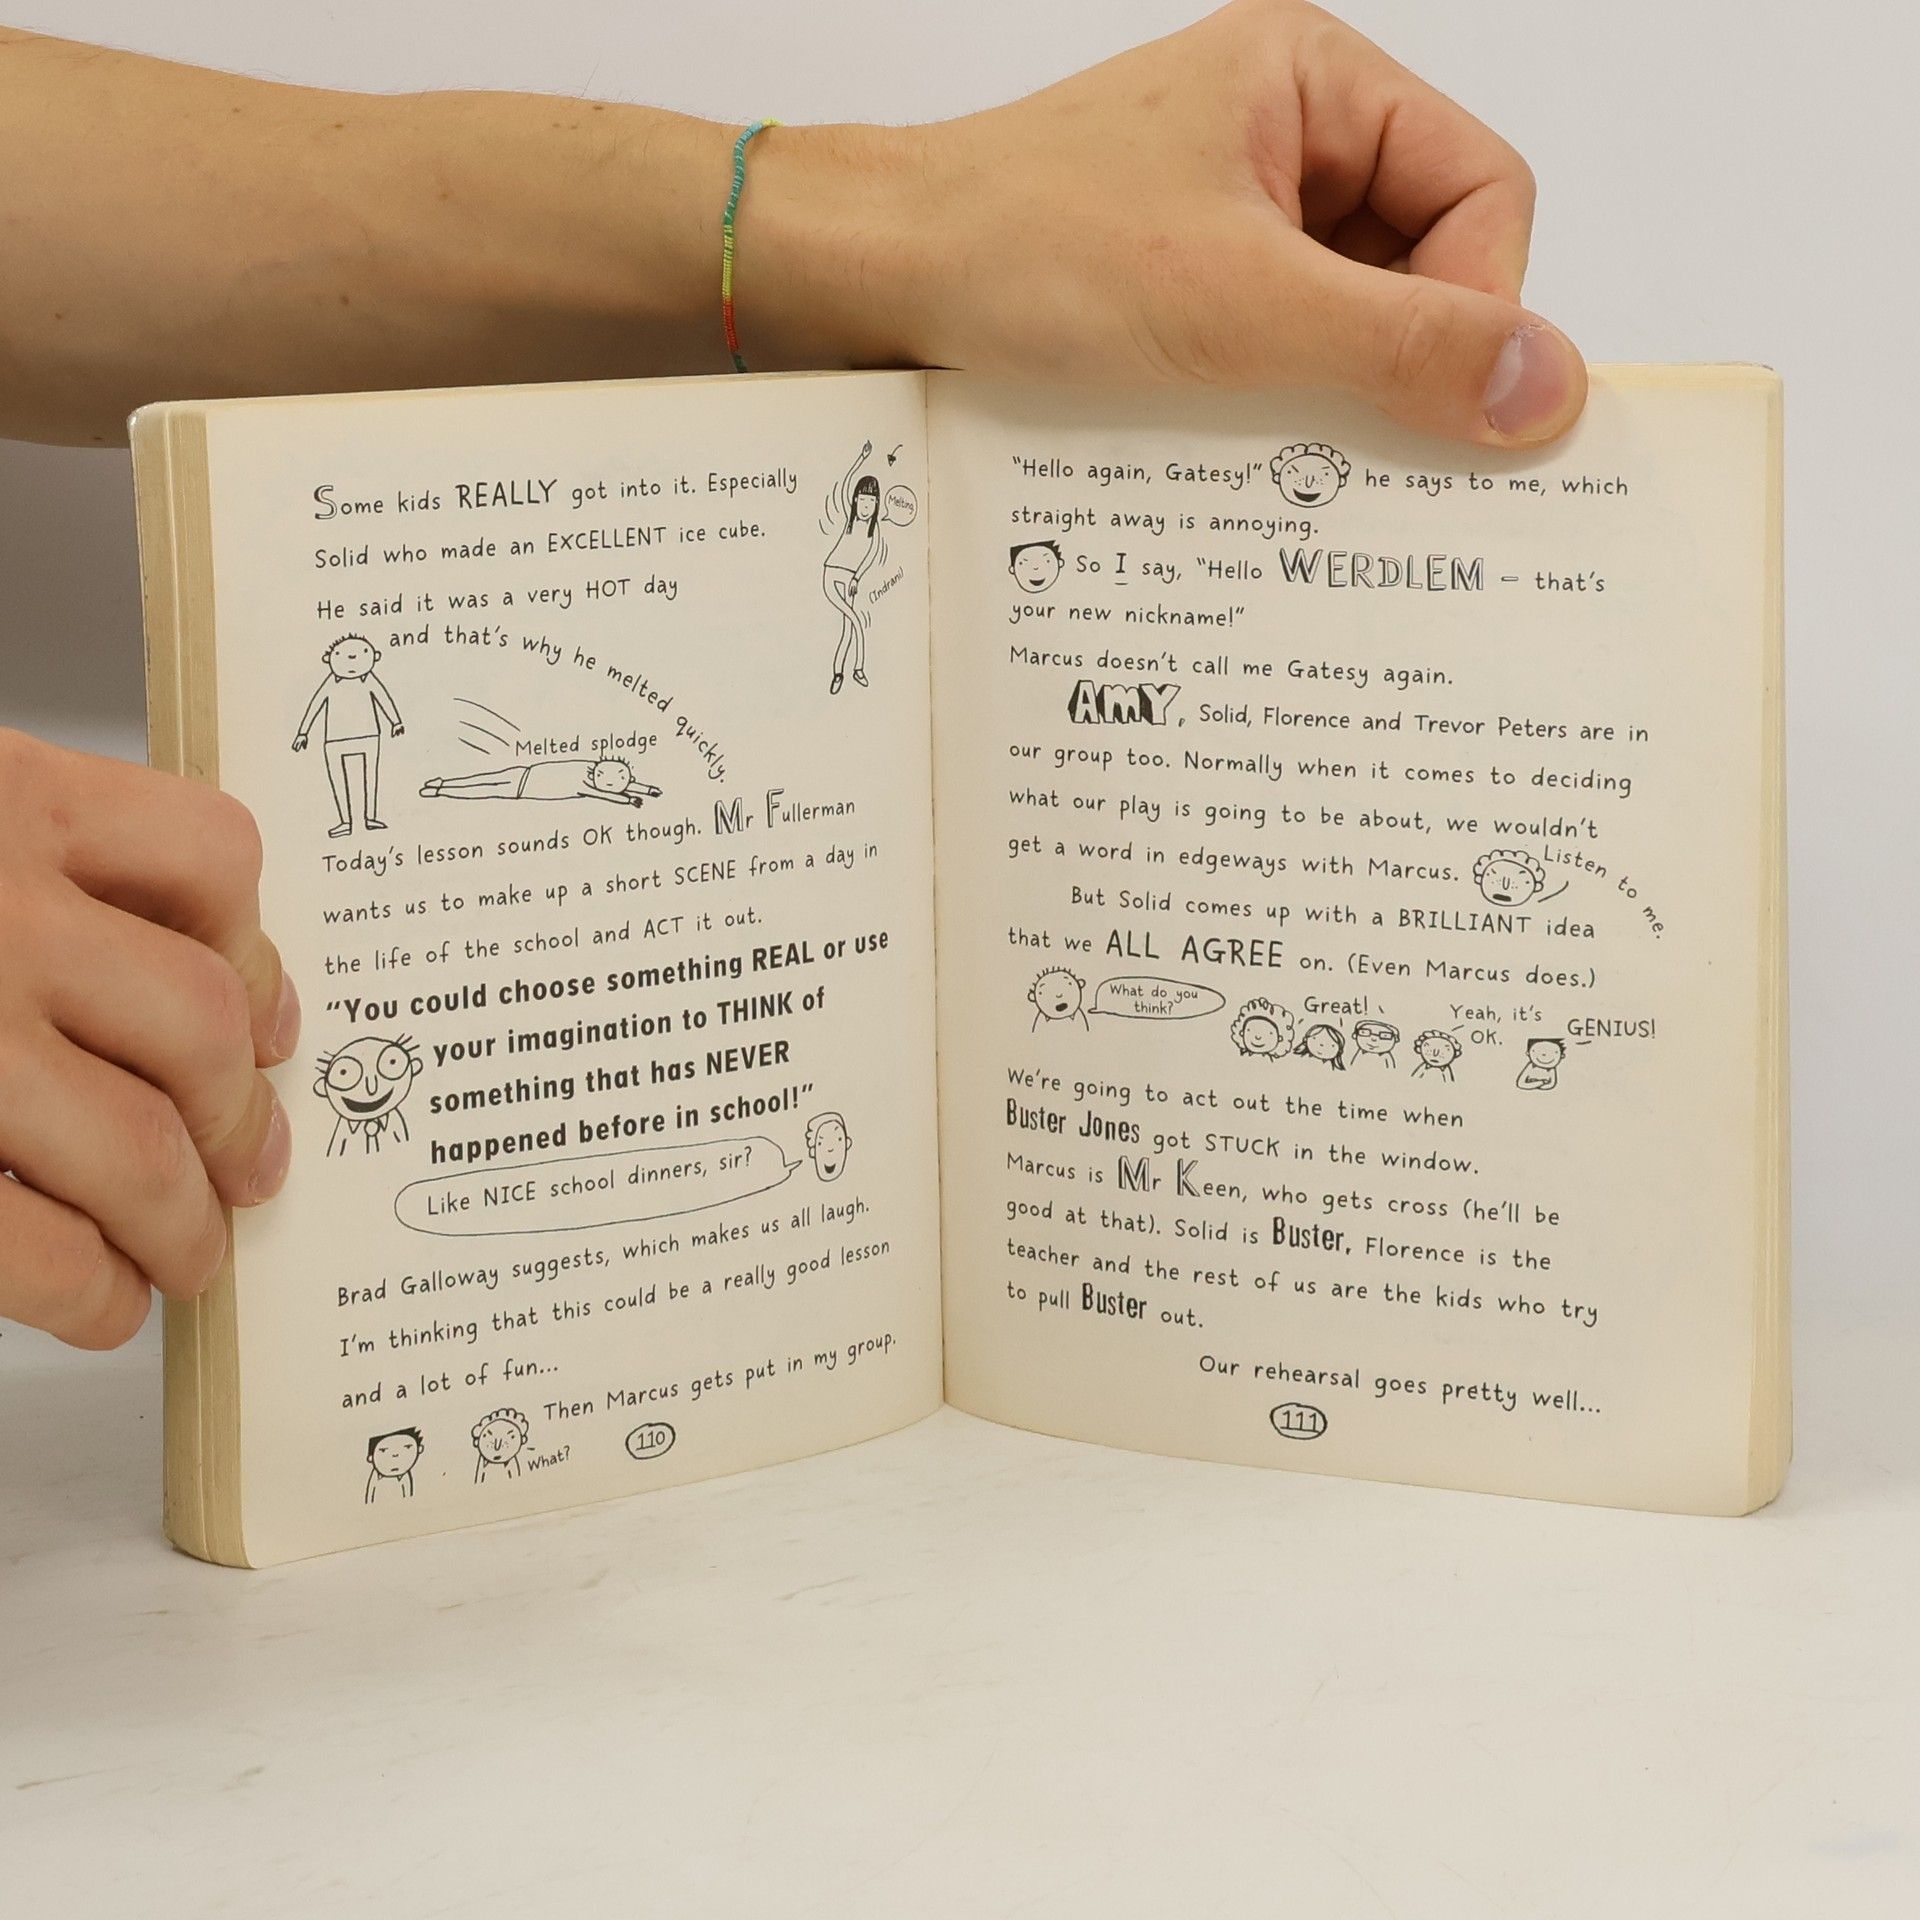 Some kids REALLY got into it. Especially
Melting
Solid who made an EXCELLENT ice cube.
(Indrani)
He said it was a very HOT day
and that's why he melted quickly.
Melted splodge
Today's lesson sounds OK though. Mr Fullerman
wants us to make up a short SCENE from a day in
the life of the school and ACT it out.
"You could choose something REAL or use
your imagination to THINK of
something that has NEVER
happened before in school!"
Like NICE school dinners, sir?
Brad Galloway suggests, which makes us all laugh.
I'm thinking that this could be a really good lesson
and a lot of fun...
Then Marcus gets put in my group.
What?
110
"Hello again, Gatesy!" he says to me, which
straight away is annoying.
So I say, "Hello WERDLEM – that's
your new nickname!"
Marcus doesn't call me Gatesy again.
AMY, Solid, Florence and Trevor Peters are in
our group too. Normally when it comes to deciding
what our play is going to be about, we wouldn't
get a word in edgeways with Marcus.
Listen to me.
But Solid comes up with a BRILLIANT idea
that we ALL AGREE on. (Even Marcus does.)
What do you
think?
Great!
Yeah, it's
OK.
GENIUS!
We're going to act out the time when
Buster Jones got STUCK in the window.
Marcus is Mr Keen, who gets cross (he'll be
good at that). Solid is Buster, Florence is the
teacher and the rest of us are the kids who try
to pull Buster out.
Our rehearsal goes pretty well...
111